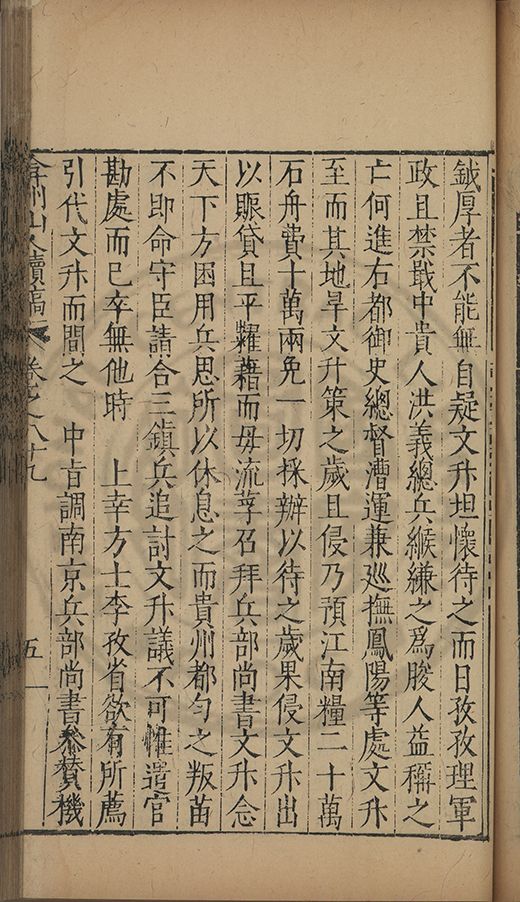 鉞厚者不能無自疑文升坦懷待之而日孜孜理軍
政且禁戢中貴人洪義總兵緱謙之爲朘人益稱之
亡何進右都御史總督漕運兼廵撫鳳陽等處文升
至而其地旱文升策之歲且侵乃預江南糧二十萬
石舟費十萬兩免一切採辦以待之歲果侵文升出
以賑貸且平糶藉而毋流莩召拜兵部尚書文升念
天下方困用兵思所以休息之而貴州都勻之叛苗
不即命守臣請合三鎮兵追討文升議不可惟遣官
勘處而已卒無他時　上幸方士李孜省欲有所薦
引代文升而間之　中旨調南京兵部尚書叅贊機
弇州山人續稿　卷之八十九　五